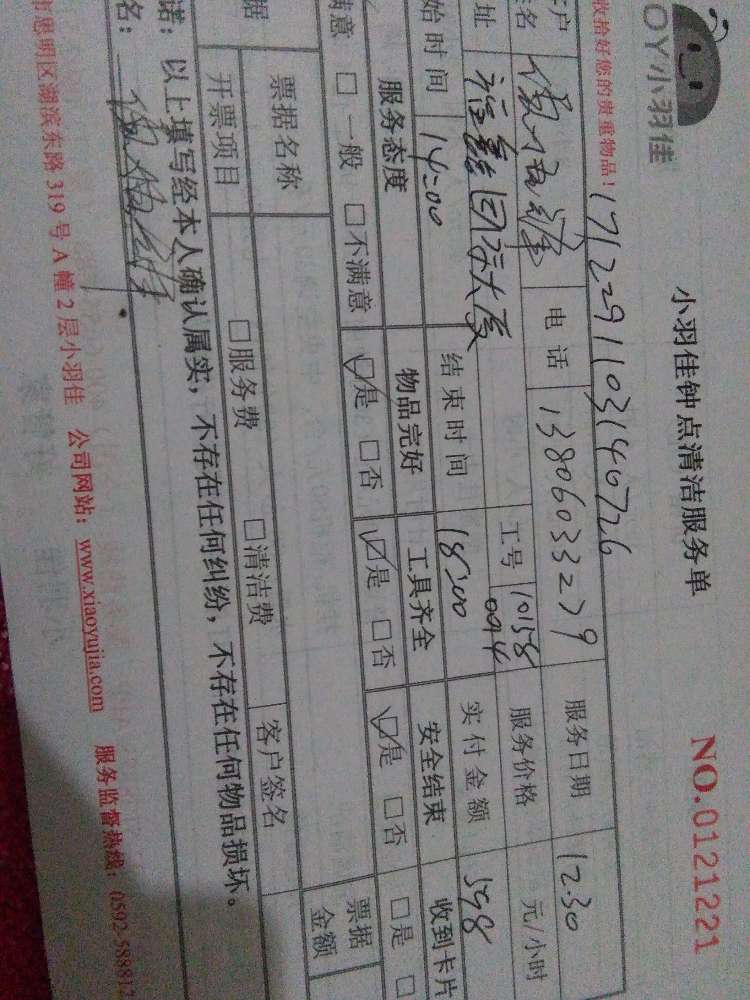 OY小羽佳
小羽佳钟点清洁服务单
NO.0121221
收拾好您的贵重物品！
1712291103140726
客户
签名
电话
13806033279
服务日期
12.30
工号
10158
0094
服务价格
元/小时
始时间
14:00
结束时间
18:00
实付金额
598
服务态度
物品完好
工具齐全
安全结束
收到卡片
满意 □ 一般 □不满意
□是 □否
□是 □否
□是 □否
□是 □
票据名称
客户签名
票据
金额
开票项目
□服务费 □清洁费
诺：以上填写经本人确认属实，不存在任何纠纷，不存在任何物品损坏。
名：
市思明区湖滨东路 319 号 A 幢 2 层小羽佳 公司网站：www.xiaoyujia.com 服务监督热线：0592-588812